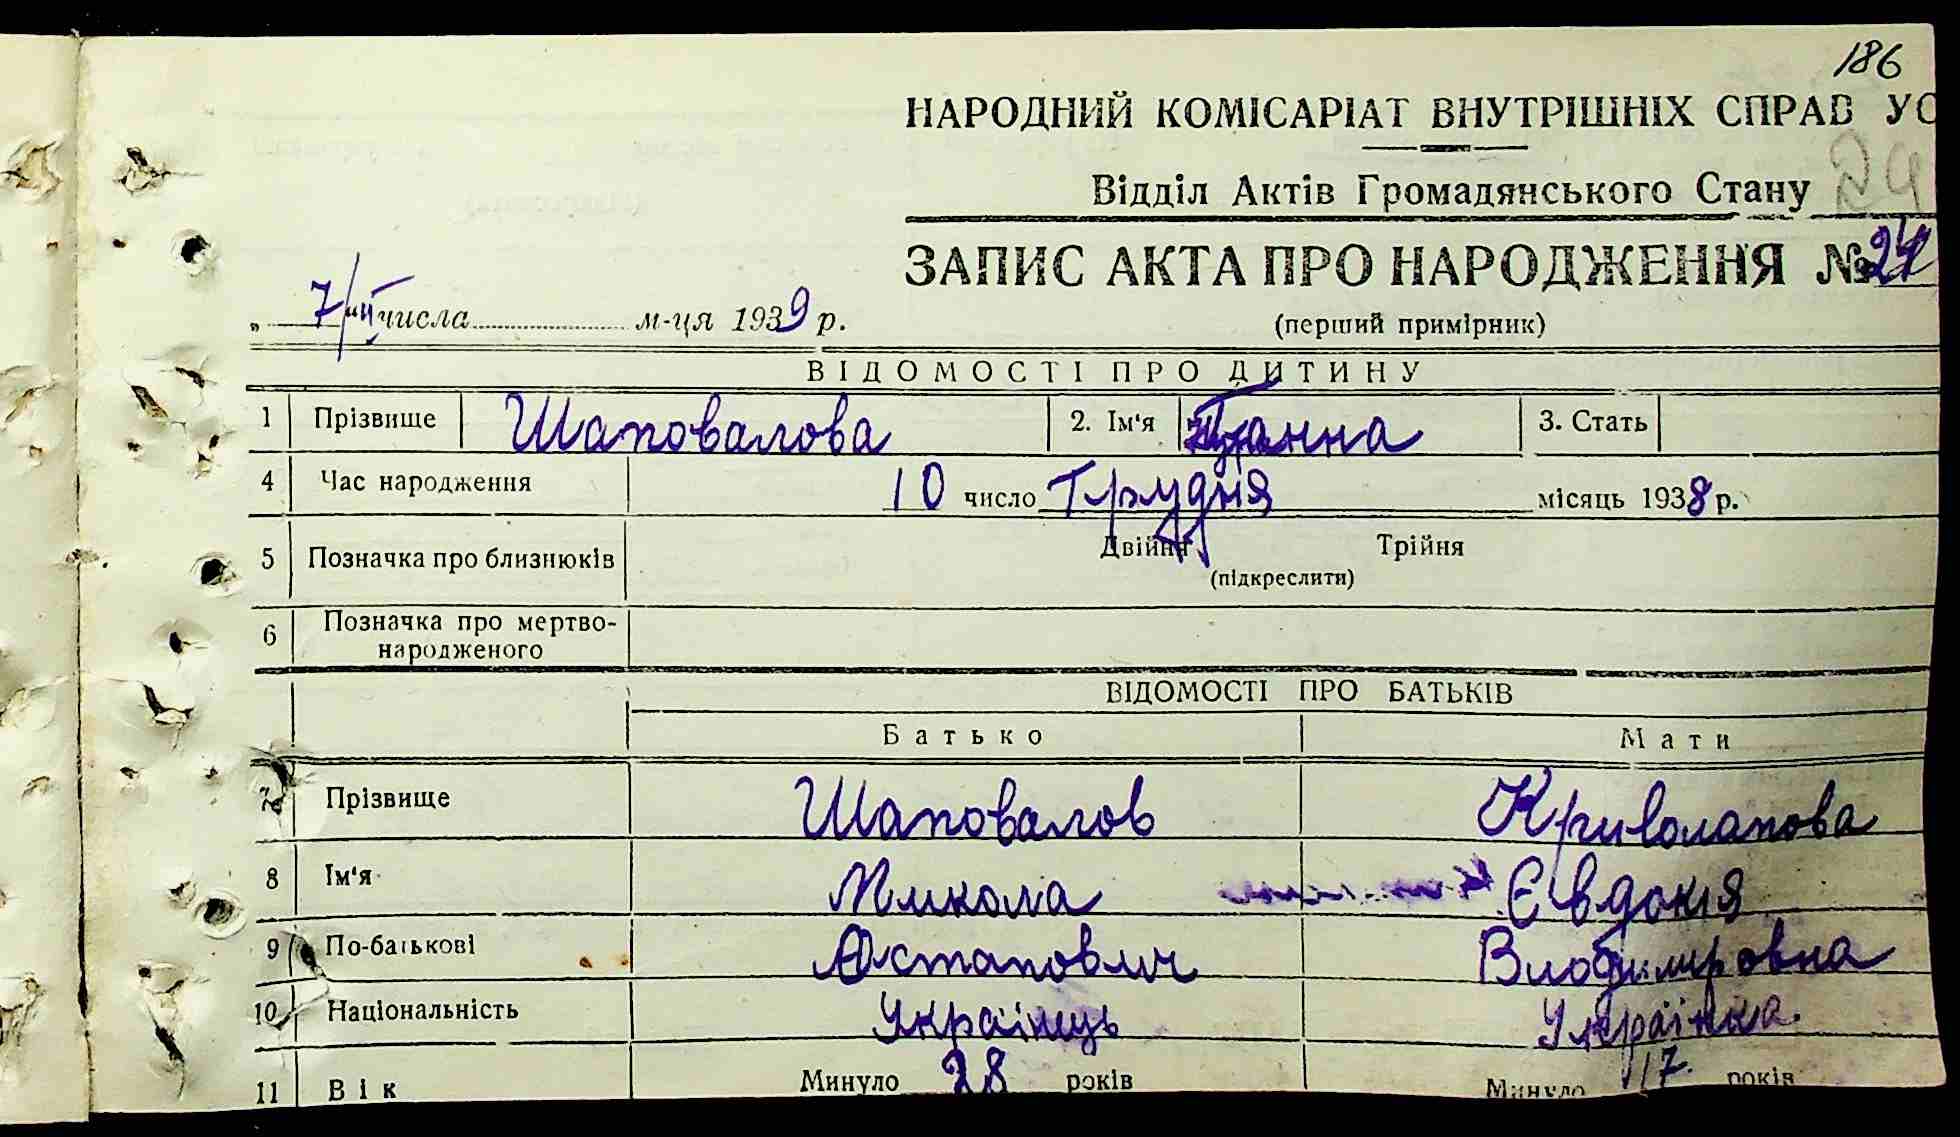 186
НАРОДНИЙ КОМІСАРІАТ ВНУТРІШНІХ СПРАВ УС
Відділ Актів Громадянського Стану 24
ЗАПИС АКТА ПРО НАРОДЖЕННЯ № 24
„ 7/II “ числа м-ця 1939 р.
(перший примірник)
ВІДОМОСТІ ПРО ДИТИНУ
1 Прізвище Шаповалова 2. Ім'я Ганна 3. Стать
4 Час народження 10 число Грудня місяць 1938 р.
5 Позначка про близнюків Двійня Трійня
(підкреслити)
6 Позначка про мертво-
народженого
ВІДОМОСТІ ПРО БАТЬКІВ
Батько Мати
7 Прізвище Шаповалов Криволапова
8 Ім'я Микола Євдокія
9 По-батькові Остапович
10 Національність Українець Українка
11 Вік Минуло 28 років Минуло 17 років